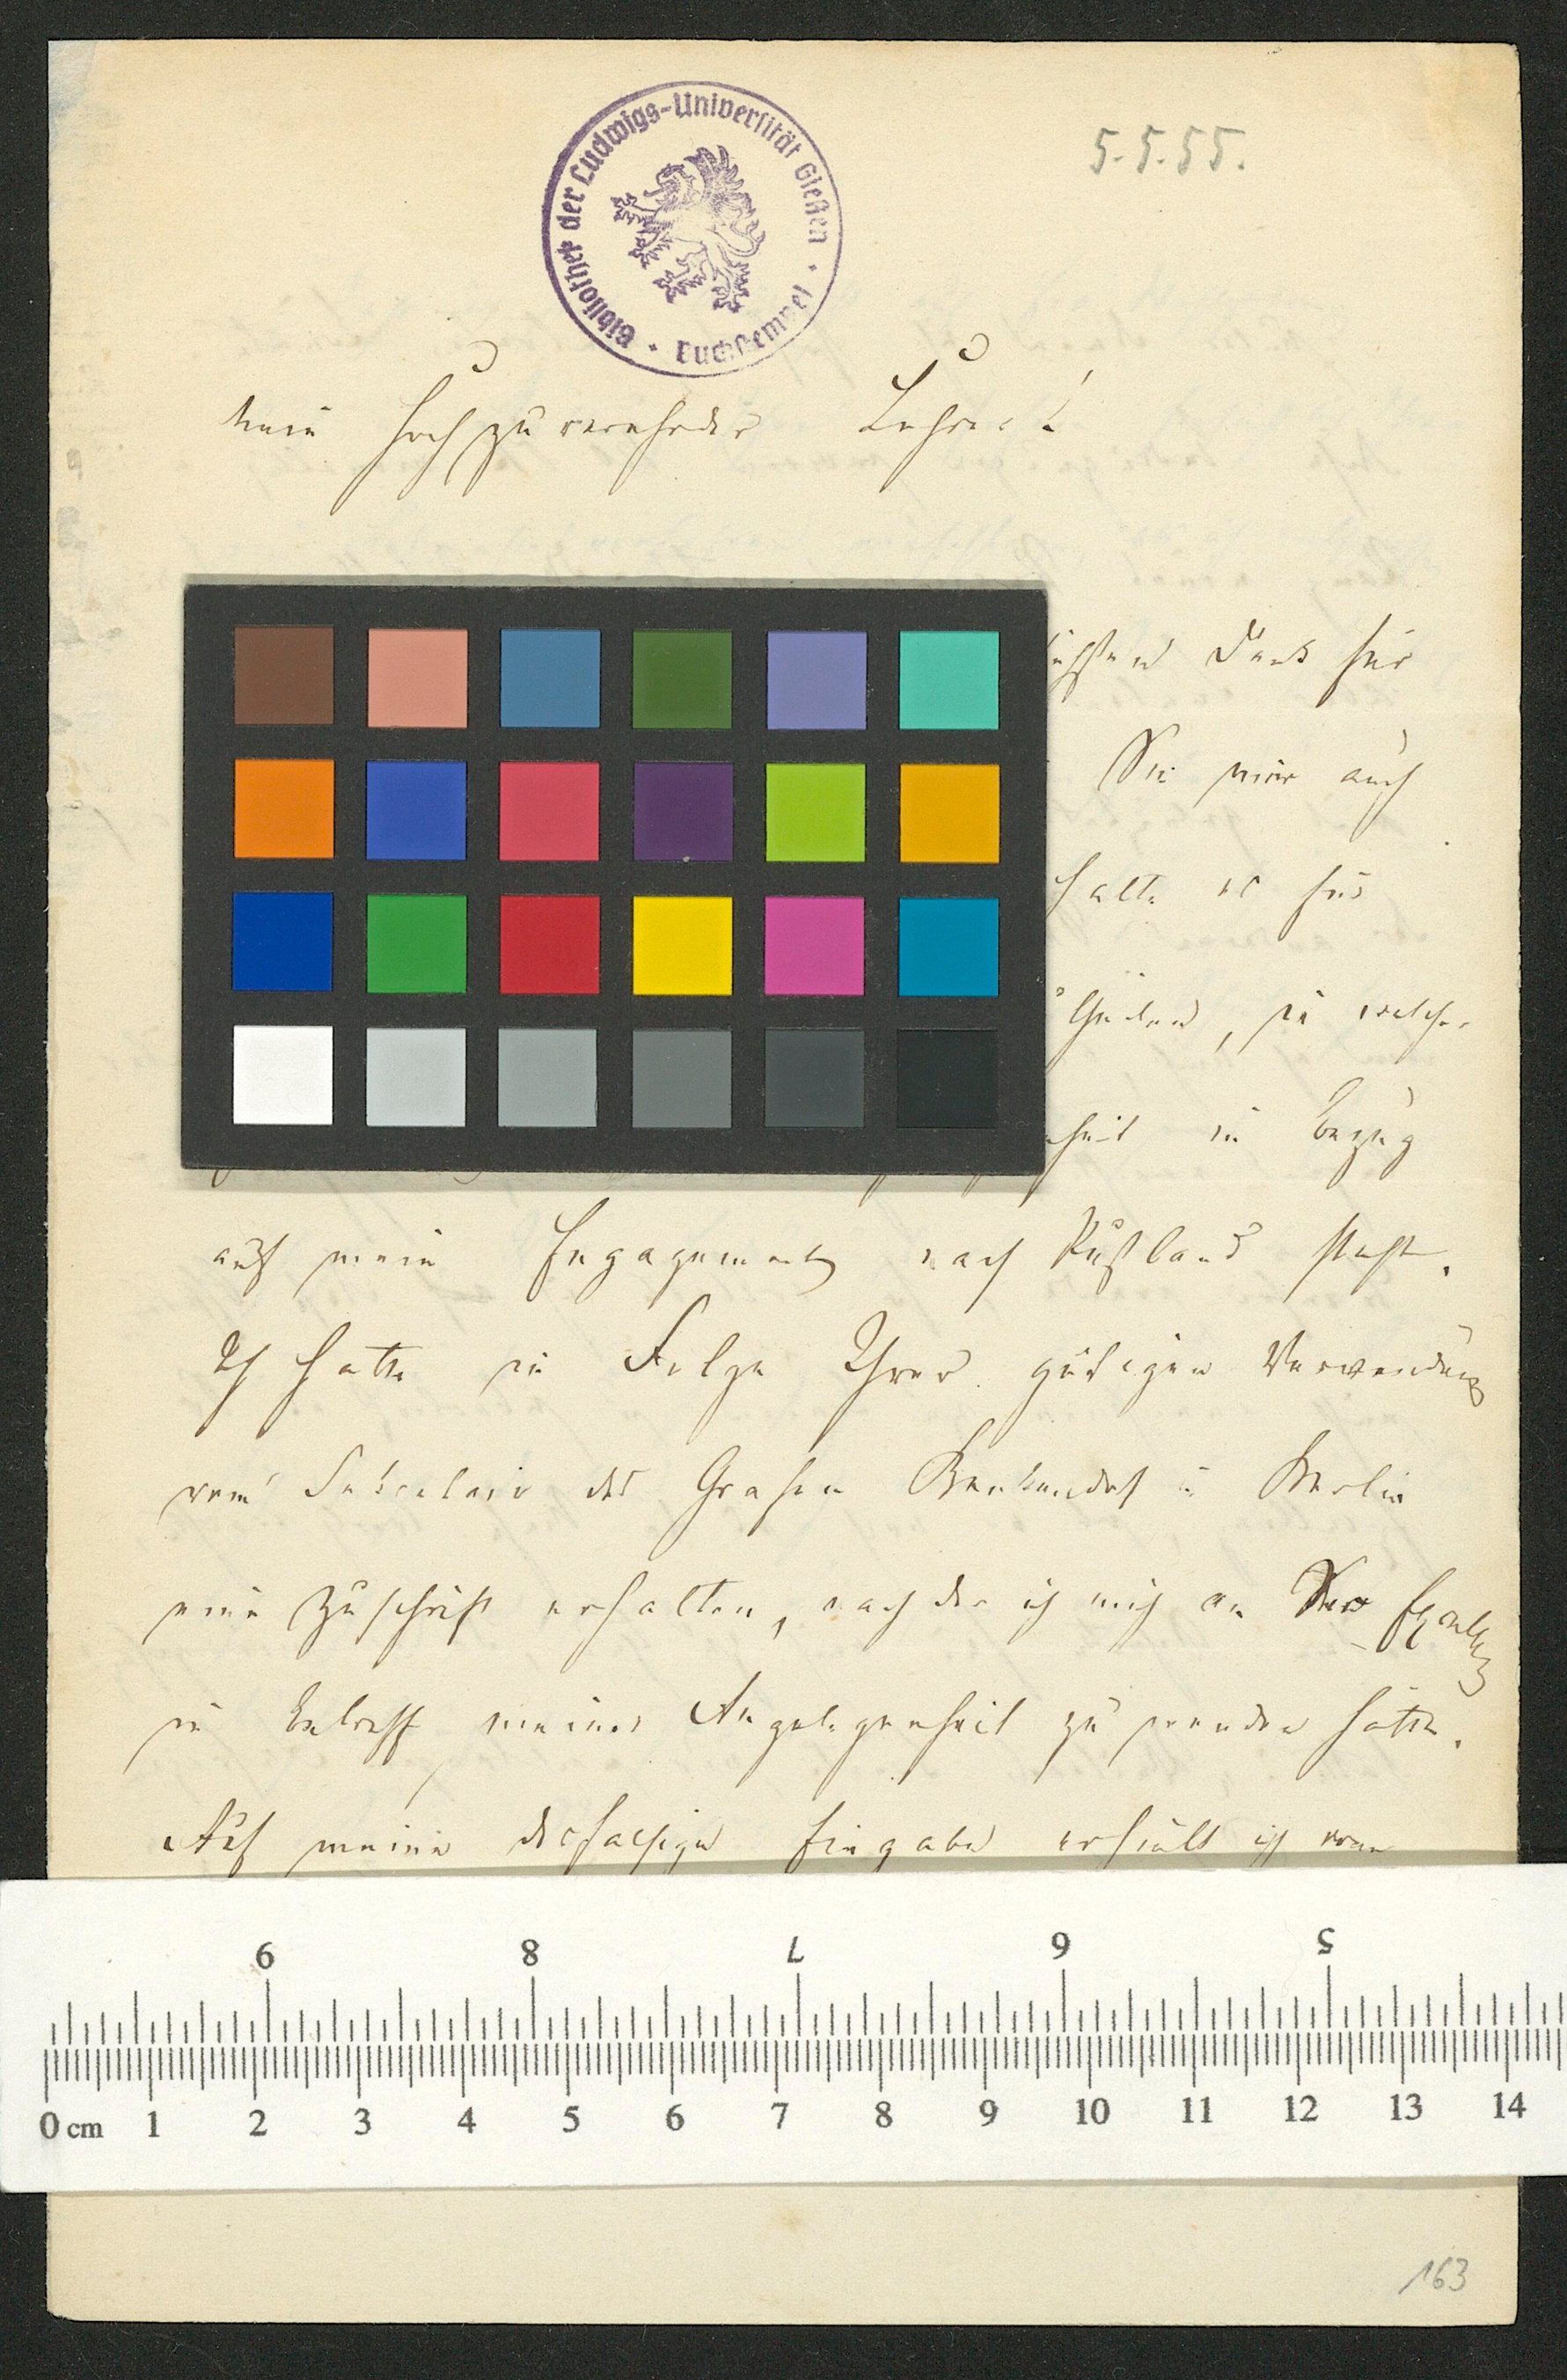 Bibliothek der Ludwigs-Universität Gießen · Buchstempel ·
5.5.55.
Mein hochzuverehrender Lehrer!
Dank für
Sie mir auch
halte es für
, in welcher
in Bezug
auf mein Engagement nach Rußland steht.
Ich hatte in Folge Ihrer gütigen Verwendung
vom Sekretair des Grafen Benkendorf in Berlin
eine Zuschrift erhalten, nach der ich mich an Excellenz
in Betreff meiner Angelegenheit zu wenden hätte.
Auf meine Eingabe erhielt ich von
9 8 7 6 5
0 cm 1 2 3 4 5 6 7 8 9 10 11 12 13 14
163